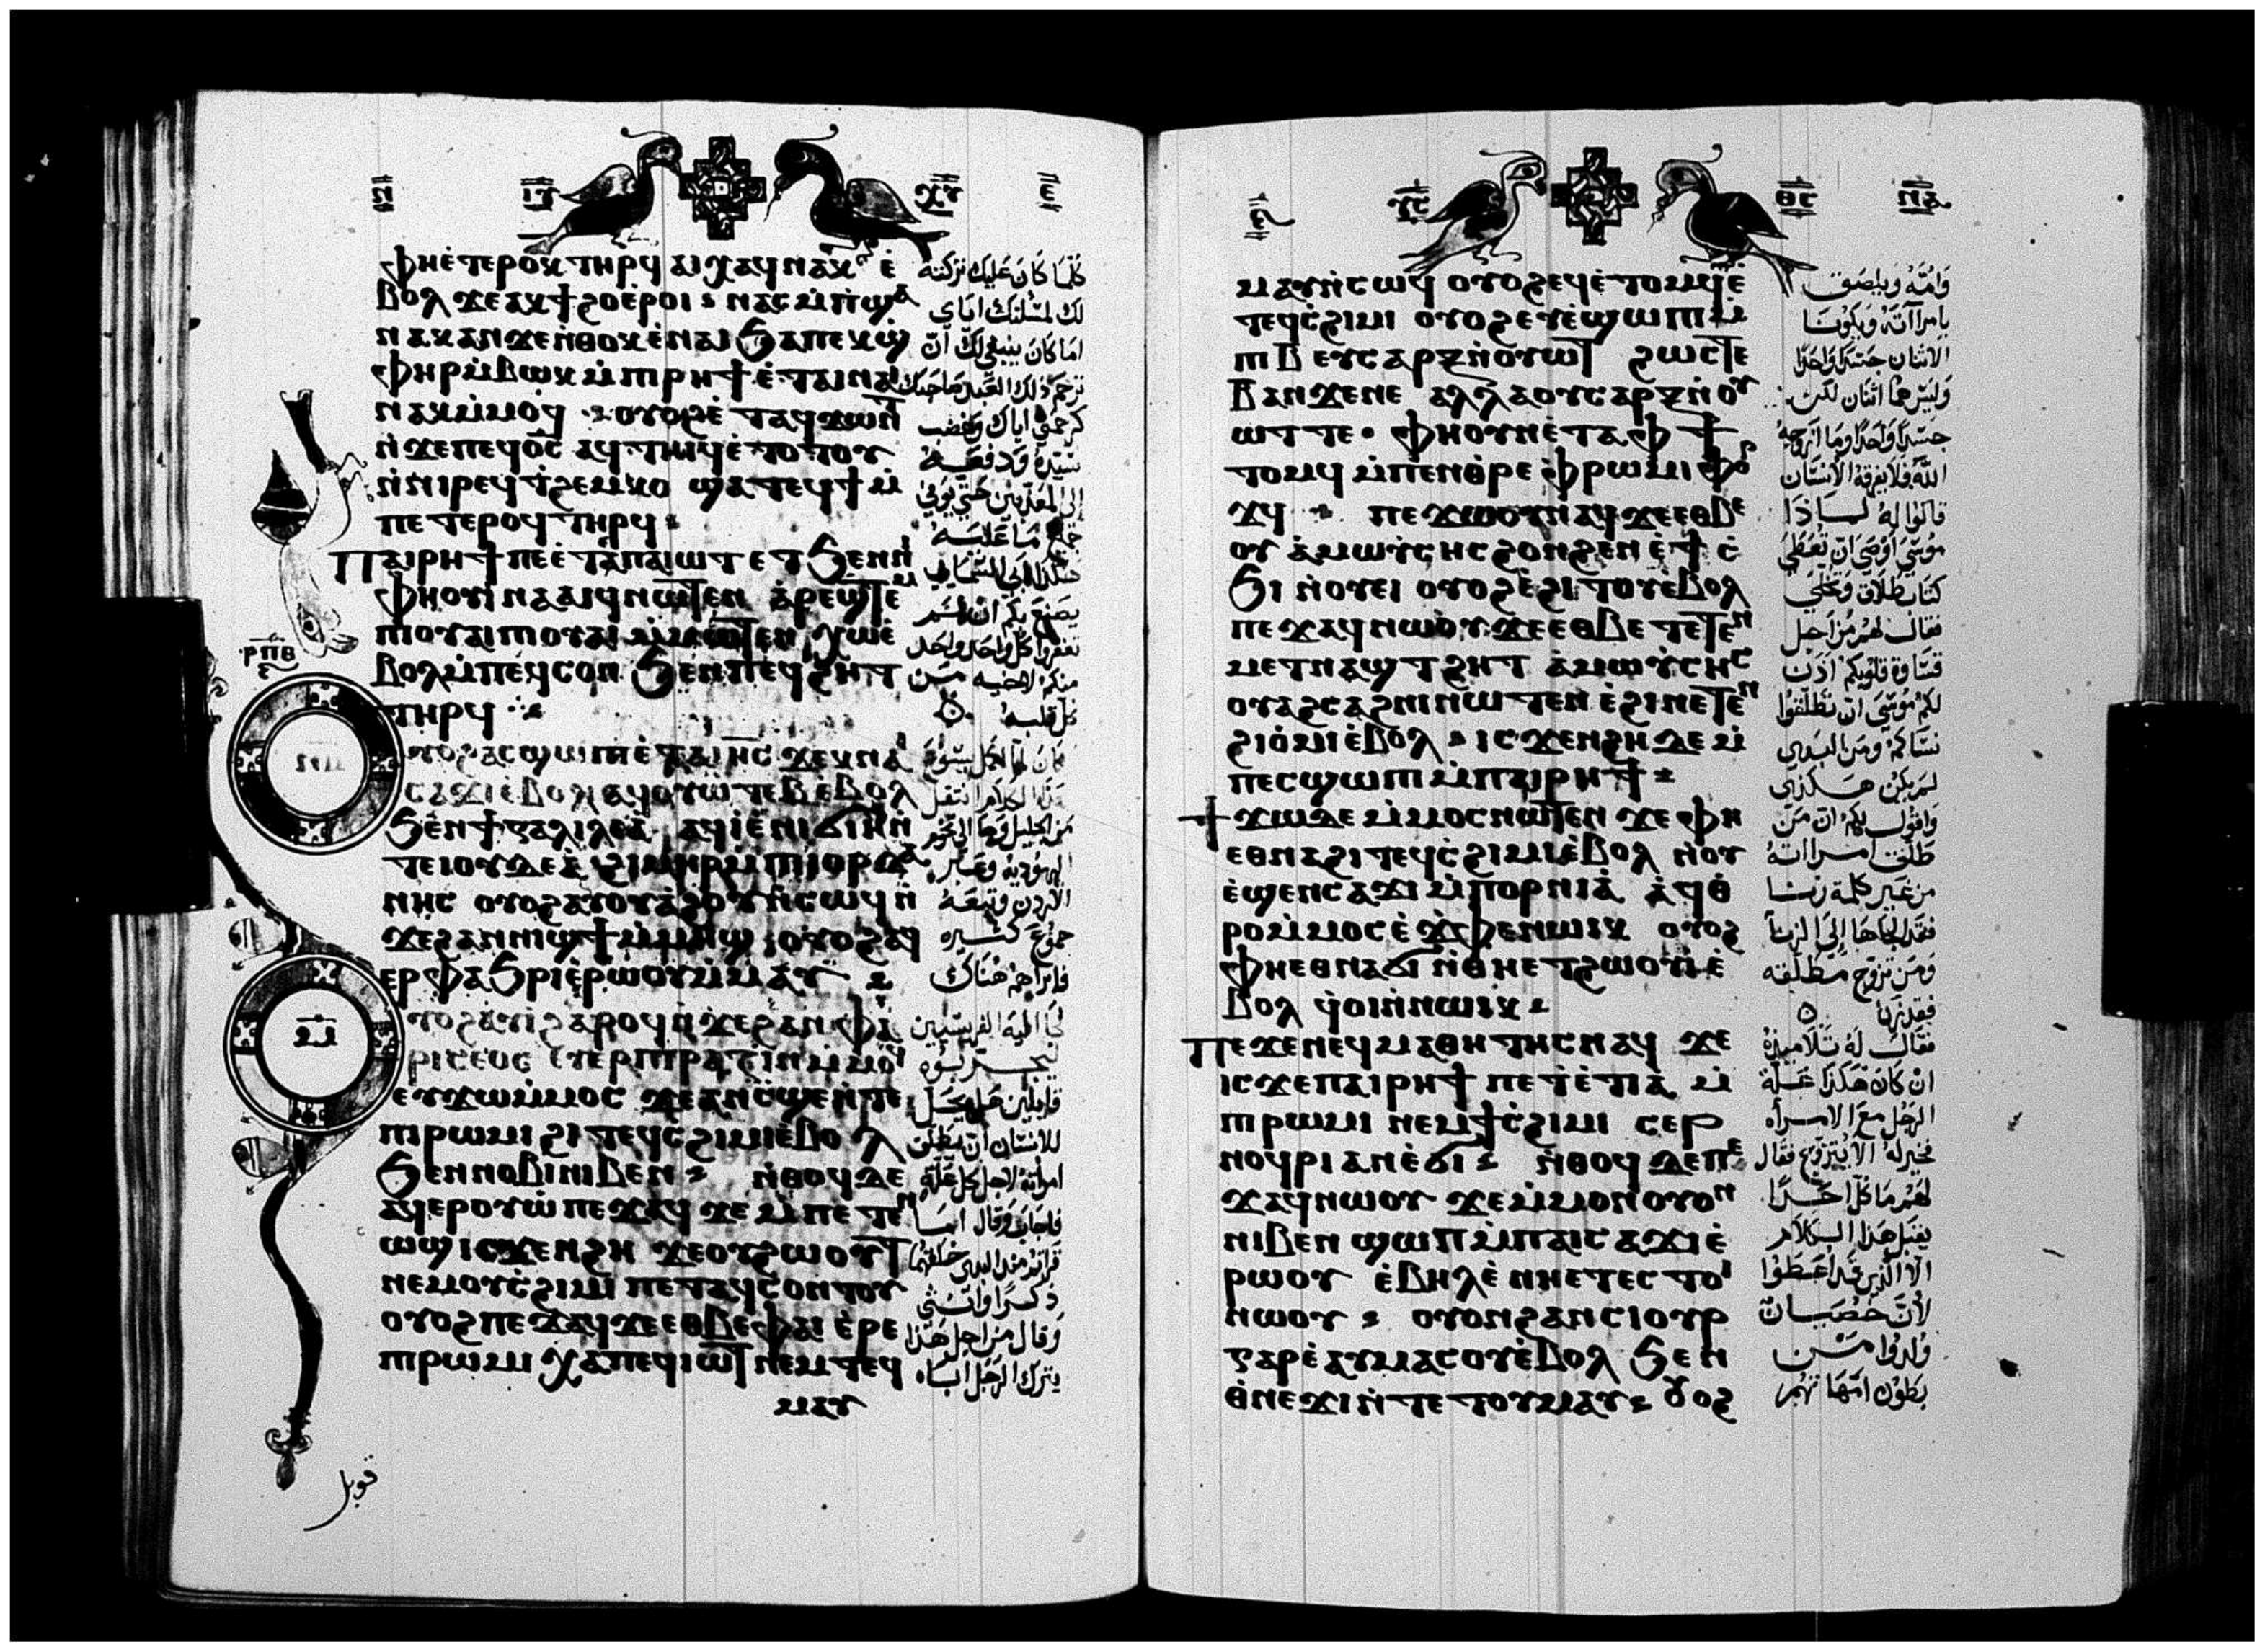 ⲓ̅ⲩ̅ ⲭ̅ⲩ̅ ⲉ̅
ⲫⲏⲉ̀ⲧⲉⲣⲟⲕ ⲧⲏⲣϥ ⲁⲓⲭⲁϥ ⲛⲁⲕ ⲉ̀
ⲃⲟⲗ ϫⲉ ⲁⲕϯϩⲟ ⲉ̀ⲣⲟⲓ ⲛⲁⲥⲙ̀ⲡ̀ϣⲁ
ⲛⲁⲕ ⲁⲛ ϫⲉ ⲛ̀ⲑⲟⲕ ⲉ̀ⲛⲁⲓ ϧⲁ ⲡⲉⲕϣ̀
ⲫⲏⲣ ⲙ̀ⲃⲱⲕ ⲙ̀ⲡⲓⲣⲏϯ ⲉ̀ⲧⲁⲓⲛⲁⲓ
ⲛⲁⲕ ⲙ̀ⲙⲟϥ ⲟⲩⲟϩ ⲉ̀ⲧⲁϥϫⲱⲛⲧ
ⲛ̀ϫⲉ ⲡⲉϥⲟ̅ⲥ̅ ⲁϥⲧⲏⲓϥ ⲉ̀ⲧⲟⲧⲟⲩ
ⲛ̀ⲛⲓⲣⲉϥϯϩⲉⲙⲕⲟ ϣⲁⲧⲉϥϯ ⲙ̀
ⲡⲉⲧⲉⲣⲟϥ ⲧⲏⲣϥ
ⲡⲁⲓⲣⲏϯ ⲡⲉ ⲉ̀ⲧⲁ ⲡⲁⲓⲱⲧ ⲉⲧϧⲉⲛ ⲛⲓ
ⲫⲏⲟⲩⲓ̀ ⲛⲁⲁⲓϥ ⲛⲱⲧⲉⲛ ⲁⲣⲉϣⲧⲉⲙ
ⲡⲓⲟⲩⲁⲓ ⲡⲓⲟⲩⲁⲓ ⲙ̀ⲙⲱⲧⲉⲛ ⲭⲱ ⲉ̀
ⲃⲟⲗ ⲙ̀ⲡⲉϥⲥⲟⲛ ϧⲉⲛ ⲡⲉϥϩⲏⲧ
ⲣ̅ⲡ̅ⲑ̅
ⲧⲏⲣϥ
ⲟⲩⲟϩ ⲁⲥϣⲱⲡⲓ ⲉ̀ⲧⲁ ⲓⲏⲥ ϫⲉⲕ ⲛⲁⲓ
ⲥⲁϫⲓ ⲉ̀ⲃⲟⲗ ⲁϥⲟⲩⲱⲧⲉⲃ ⲉ̀ⲃⲟⲗ
ϧⲉⲛ ϯⲅⲁⲗⲓⲗⲉⲁ ⲁϥⲓ̀ ⲉ̀ⲛⲓϭⲓⲏ ⲛ̀
ⲧⲉ ϯⲓⲟⲩⲇⲉⲁ̀ ϩⲓⲙⲏⲣ ⲙ̀ⲡⲓⲓⲟⲣⲇⲁ
ⲛⲏⲥ ⲟⲩⲟϩ ⲁⲩⲟⲩⲁϩⲟⲩ ⲛ̀ⲥⲱϥ ⲛ̀
ϫⲉ ϩⲁⲛⲛⲓϣϯ ⲙ̀ⲙⲏϣ ⲟⲩⲟϩ ⲁϥ
ⲉⲣⲫⲁϧⲣⲓ ⲉ̀ⲣⲱⲟⲩ ⲙ̀ⲙⲁⲩ
ⲙ̅
ⲟⲩⲟϩ ⲁⲩⲓ̀ ϩⲁⲣⲟϥ ⲛ̀ϫⲉ ϩⲁⲛⲫⲁ
ⲣⲓⲥⲉⲟⲥ ⲉⲩⲉⲣⲡⲓⲣⲁⲍⲓⲛ ⲙ̀ⲙⲟϥ
ⲉⲩϫⲱ ⲙ̀ⲙⲟⲥ ϫⲉ ⲁⲛ ⲥϣⲉ ⲛ̀ⲧⲉ
ⲡⲓⲣⲱⲙⲓ ϩⲓ ⲧⲉϥⲥϩⲓⲙⲓ ⲉ̀ⲃⲟⲗ
ϧⲉⲛ ⲛⲟⲃⲓ ⲛⲓⲃⲉⲛ ⲛ̀ⲑⲟϥ ⲇⲉ
ⲁϥⲉⲣⲟⲩⲱ̀ ⲡⲉϫⲁϥ ϫⲉ ⲙ̀ⲡⲉⲧⲉⲛ
ⲱϣ ⲓⲥϫⲉⲛ ϩⲏ ϫⲉ ⲟⲩϩⲱⲟⲩⲧ
ⲛⲉⲙ ⲟⲩⲥ̀ϩⲓⲙⲓ ⲡⲉⲧⲁϥⲥⲟⲛⲧⲟⲩ
ⲟⲩⲟϩ ⲡⲉϫⲁϥ ϫⲉ ⲉⲑⲃⲉ ⲫⲁⲓ ⲉ̀ⲣⲉ
ⲡⲓⲣⲱⲙⲓ ⲭⲁ ⲡⲉϥⲓⲱⲧ ⲛⲉⲙ ⲧⲉϥ
ⲙⲁⲩ
كلما كان عليك تركته
لك لمسئلتك اياي
اما كان ينبغي لك ان
ترحم ذلك العبد صاحبك
كرحمتي اياك وغضب
سيده ودفعه
الي المعذبين حتي يوفي
جميع ما عليه
هكذا ابي السماي
يصنع بكم ان لم
تغفروا كل واحد واحد
منكم لاخيه من
كل قلبه
كان لما اكمل يسوع
هذا الكلام انتقل
من الجليل وجا الي تخوم
اليهودية وعبر
الاردن وتبعه
جموع كثيره
فابراهم هناك
جا اليه الفريسيين
ليجربوه
قايلين هل يحل
للانسان ان يطلق
امراته لاجل كل علة
فاجاب وقال اما
قراتم منذ البدي خلقهما
ذكرا وانثي
وقال من اجل هذا
يترك الرجل اباه
قوبل
ⲩ̅ⲥ̅ ⲑ̅ⲥ̅ ⲛ̅ⲁ̅
ⲙⲁⲩ ⲛ̀ⲥⲱϥ ⲟⲩⲟϩ ⲉϥⲉ̀ⲧⲟⲙϥ ⲉ̀
ⲧⲉϥⲥ̀ϩⲓⲙⲓ ⲟⲩⲟϩ ⲉⲩⲉ̀ϣⲱⲡⲓ ⲙ̀
ⲡⲓⲃ ⲉⲩⲥⲁⲣⲝ ⲛ̀ⲟⲩⲱⲧ ϩⲱⲥⲧⲉ
ⲃ ⲁⲛ ϫⲉ ⲛⲉ ⲁⲗⲗⲁ ⲟⲩⲥⲁⲣⲝ ⲛ̀ⲟⲩ
ⲱⲧ ⲧⲉ ⲫⲏ ⲟⲩⲛ ⲉ̀ⲧⲁ ⲫϯ
ⲧⲟⲙϥ ⲙ̀ⲡⲉⲛⲑⲣⲉ ⲫⲣⲱⲙⲓ ⲫⲟⲣ
ϫϥ ⲡⲉϫⲱⲟⲩ ⲛⲁϥ ϫⲉ ⲉⲑⲃⲉ
ⲟⲩ ⲁ̀ⲙⲱⲩⲥⲏⲥ ϩⲟⲛϩⲉⲛ ⲉ̀ϯ ⲥ̀
ϧⲓ ⲛ̀ⲟⲩⲉⲓ ⲟⲩⲟϩ ⲉ̀ϩⲓⲧⲟⲩ ⲉⲃⲟⲗ
ⲡⲉϫⲁϥ ⲛⲱⲟⲩ ϫⲉ ⲉⲑⲃⲉ ⲧⲉⲧⲉⲛ
ⲙⲉⲧⲛⲁϣⲧϩⲏⲧ ⲁ̀ⲙⲱⲩ̀ⲥⲏⲥ
ⲟⲩⲁϩⲥⲁϩⲛⲓ ⲛⲱⲧⲉⲛ ⲉ̀ϩⲓ ⲛⲉⲧⲉⲛ
ϩⲓⲟ̀ⲙⲓ ⲉ̀ⲃⲟⲗ ⲓⲥϫⲉⲛ ϩⲏ ⲇⲉ ⲙ̀
ⲡⲉⲥϣⲱⲡⲓ ⲙ̀ⲡⲁⲓⲣⲏϯ
ϯϫⲱ ⲇⲉ ⲙ̀ⲙⲟⲥ ⲛⲱⲧⲉⲛ ϫⲉ ⲫⲏ
ⲉⲑⲛⲁϩⲓ ⲧⲉϥⲥ̀ϩⲓⲙⲓ ⲉ̀ⲃⲟⲗ ⲛ̀ⲟⲩ
ⲉ̀ϣⲉⲛ ⲥⲁϫⲓ ⲙ̀ⲡⲟⲣⲛⲓⲁ̀ ⲁ̀ϥⲑ
ⲣⲟ ⲙ̀ⲙⲟⲥ ⲉ̀ϫⲫⲉ ⲛⲱⲓⲕ ⲟⲩⲟϩ
ⲫⲏ ⲉⲑⲛⲁϭⲓ ⲛ̀ⲑⲏ ⲉⲧϩⲱⲟⲩⲓ̀ ⲉ̀
ⲃⲟⲗ ϥ̀ⲟⲓ ⲛ̀ⲛⲱⲓⲕ
ⲡⲉϫⲉ ⲛⲉϥⲙⲁⲑⲏⲧⲏⲥ ⲛⲁϥ ϫⲉ
ⲓⲥϫⲉ ⲡⲁⲓⲣⲏϯ ⲡⲉ ⲧ̀ⲉ̀ⲧⲓⲁ ⲙ̀
ⲡⲓⲣⲱⲙⲓ ⲛⲉⲙ ϯⲥ̀ϩⲓⲙⲓ ⲥⲉⲣ
ⲛⲟϥⲣⲓ ⲁⲛ ⲉ̀ϭⲓ ⲛ̀ⲑⲟϥ ⲇⲉ ⲡⲉ
ϫⲁϥ ⲛⲱⲟⲩ ϫⲉ ⲙ̀ⲙⲟⲛ ⲟⲩⲟⲛ
ⲛⲓⲃⲉⲛ ϣⲱⲡ ⲙ̀ⲡⲁⲓⲥⲁϫⲓ ⲉ̀
ⲣⲱⲟⲩ ⲉ̀ⲃⲏⲗ ⲉ̀ⲛⲏ ⲉⲧⲉⲥⲧⲟⲓ
ⲛⲱⲟⲩ ⲟⲩⲟⲛ ϩⲁⲛⲥⲓⲟⲩⲣ
ⲅⲁⲣ ⲉ̀ⲁⲩⲙⲁⲥⲟⲩ ⲉ̀ⲃⲟⲗ ϧⲉⲛ
ⲑⲛⲉϫⲓ ⲛ̀ⲧⲉ ⲧⲟⲩⲙⲁⲩ ⲟⲩⲟϩ
وامه ويلصق
بامراته ويكونا
الاثنان جسدا واحدا
وليس هما اثنان لكن
جسدا واحدا وما ازوجه
الله فلا يفرقه الانسان
قالوا له لماذا
موسي اوصي ان تعطي
كتاب طلاق وتخلي
فقال لهم من اجل
قساوة قلوبكم اذن
لكم موسي ان تطلقوا
نساكم ومن البدي
لم يكن هكذي
واقول لكم ان من
طلق امراته
من غير كلمة زنا
فقد الجاها الي الزنا
ومن تزوج مطلقه
فقد زنا
فقال له تلاميذه
ان كان هكذا علة
الرجل مع الامراه
فخير له الا يتزوج فقال
لهم ما كل احد
يقبل هذا الكلام
الا الذين قد اعطوا
لان خصيان
ولدوا من
بطون امهاتهم